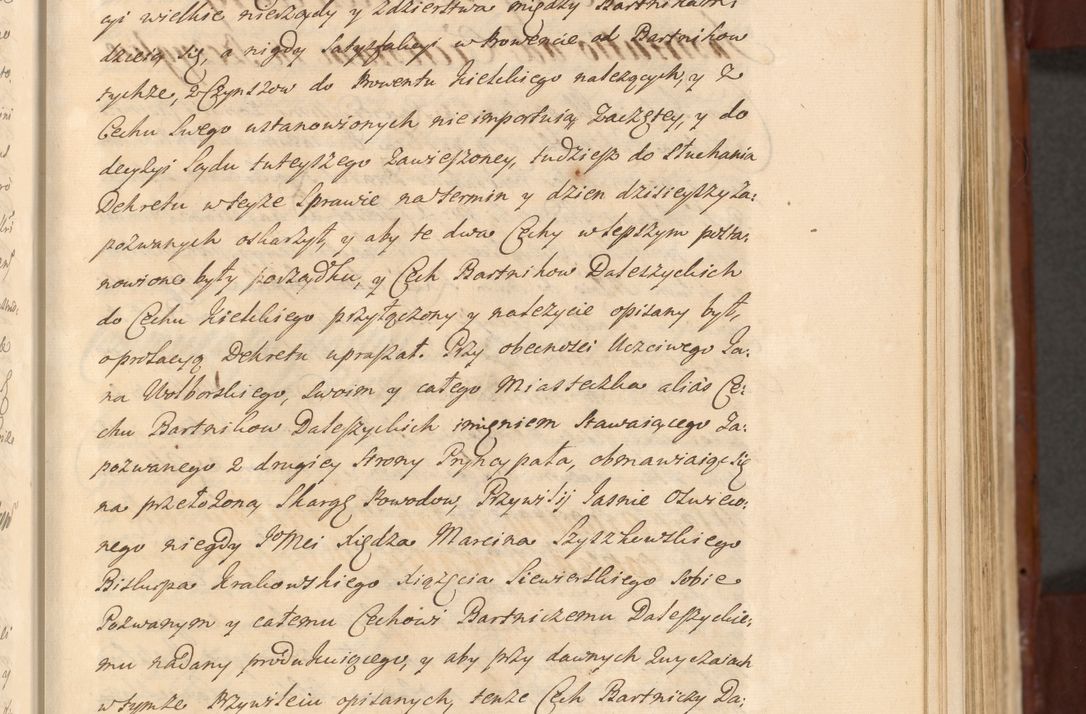 cyi wielkie nierządy y zdzierstwa między Bartnikami
dzieią się, a nigdy Satysfakcyi w Prowencie od Bartnikow
tychże, z Czynszow do Prowentu Kielckiego należących, y z
Cechu Swego ustanowionych nieimportuią Zaczętey, y do
decyzyi Sądu tuteyszego Zawieszoney, tudziesz do Słuchania
Dekretu w teyże Sprawie na termin y dzien dzisieyszy Za:
pozwanych oskarżył, y aby te dwa Cechy w lepszym posta:
nowione były porządku, y Cech Bartnikow Daleszyckich
do Cechu Kielckiego przyłączony y należycie opisany był,
o prolacyą Dekretu upraszał. Przy obecnosci Uczciwego Ja:
na Wolborskiego, Swoim y całego Miasteczka alias Ce:
chu Bartnikow Daleszyckich imieniem Stawaiącego Za:
pozwanego z drugiey Strony Pryncypała, obmawiaiąc się
na przełożoną Skargę Powodow, Przywiliy Jasnie Oswieco:
nego niegdy JoMci Xiędza Marcina Szyszkowskiego
Biskupa Krakowskiego Xiążęcia Siewierskiego Sobie
Pozwanym y całemu Cechowi Bartniczemu Daleszyckie:
mu nadany produkuiącego, y aby przy dawnych Zwyczaiach
w tymże Przywileiu opisanych, tenże Cech Bartniczy Da: